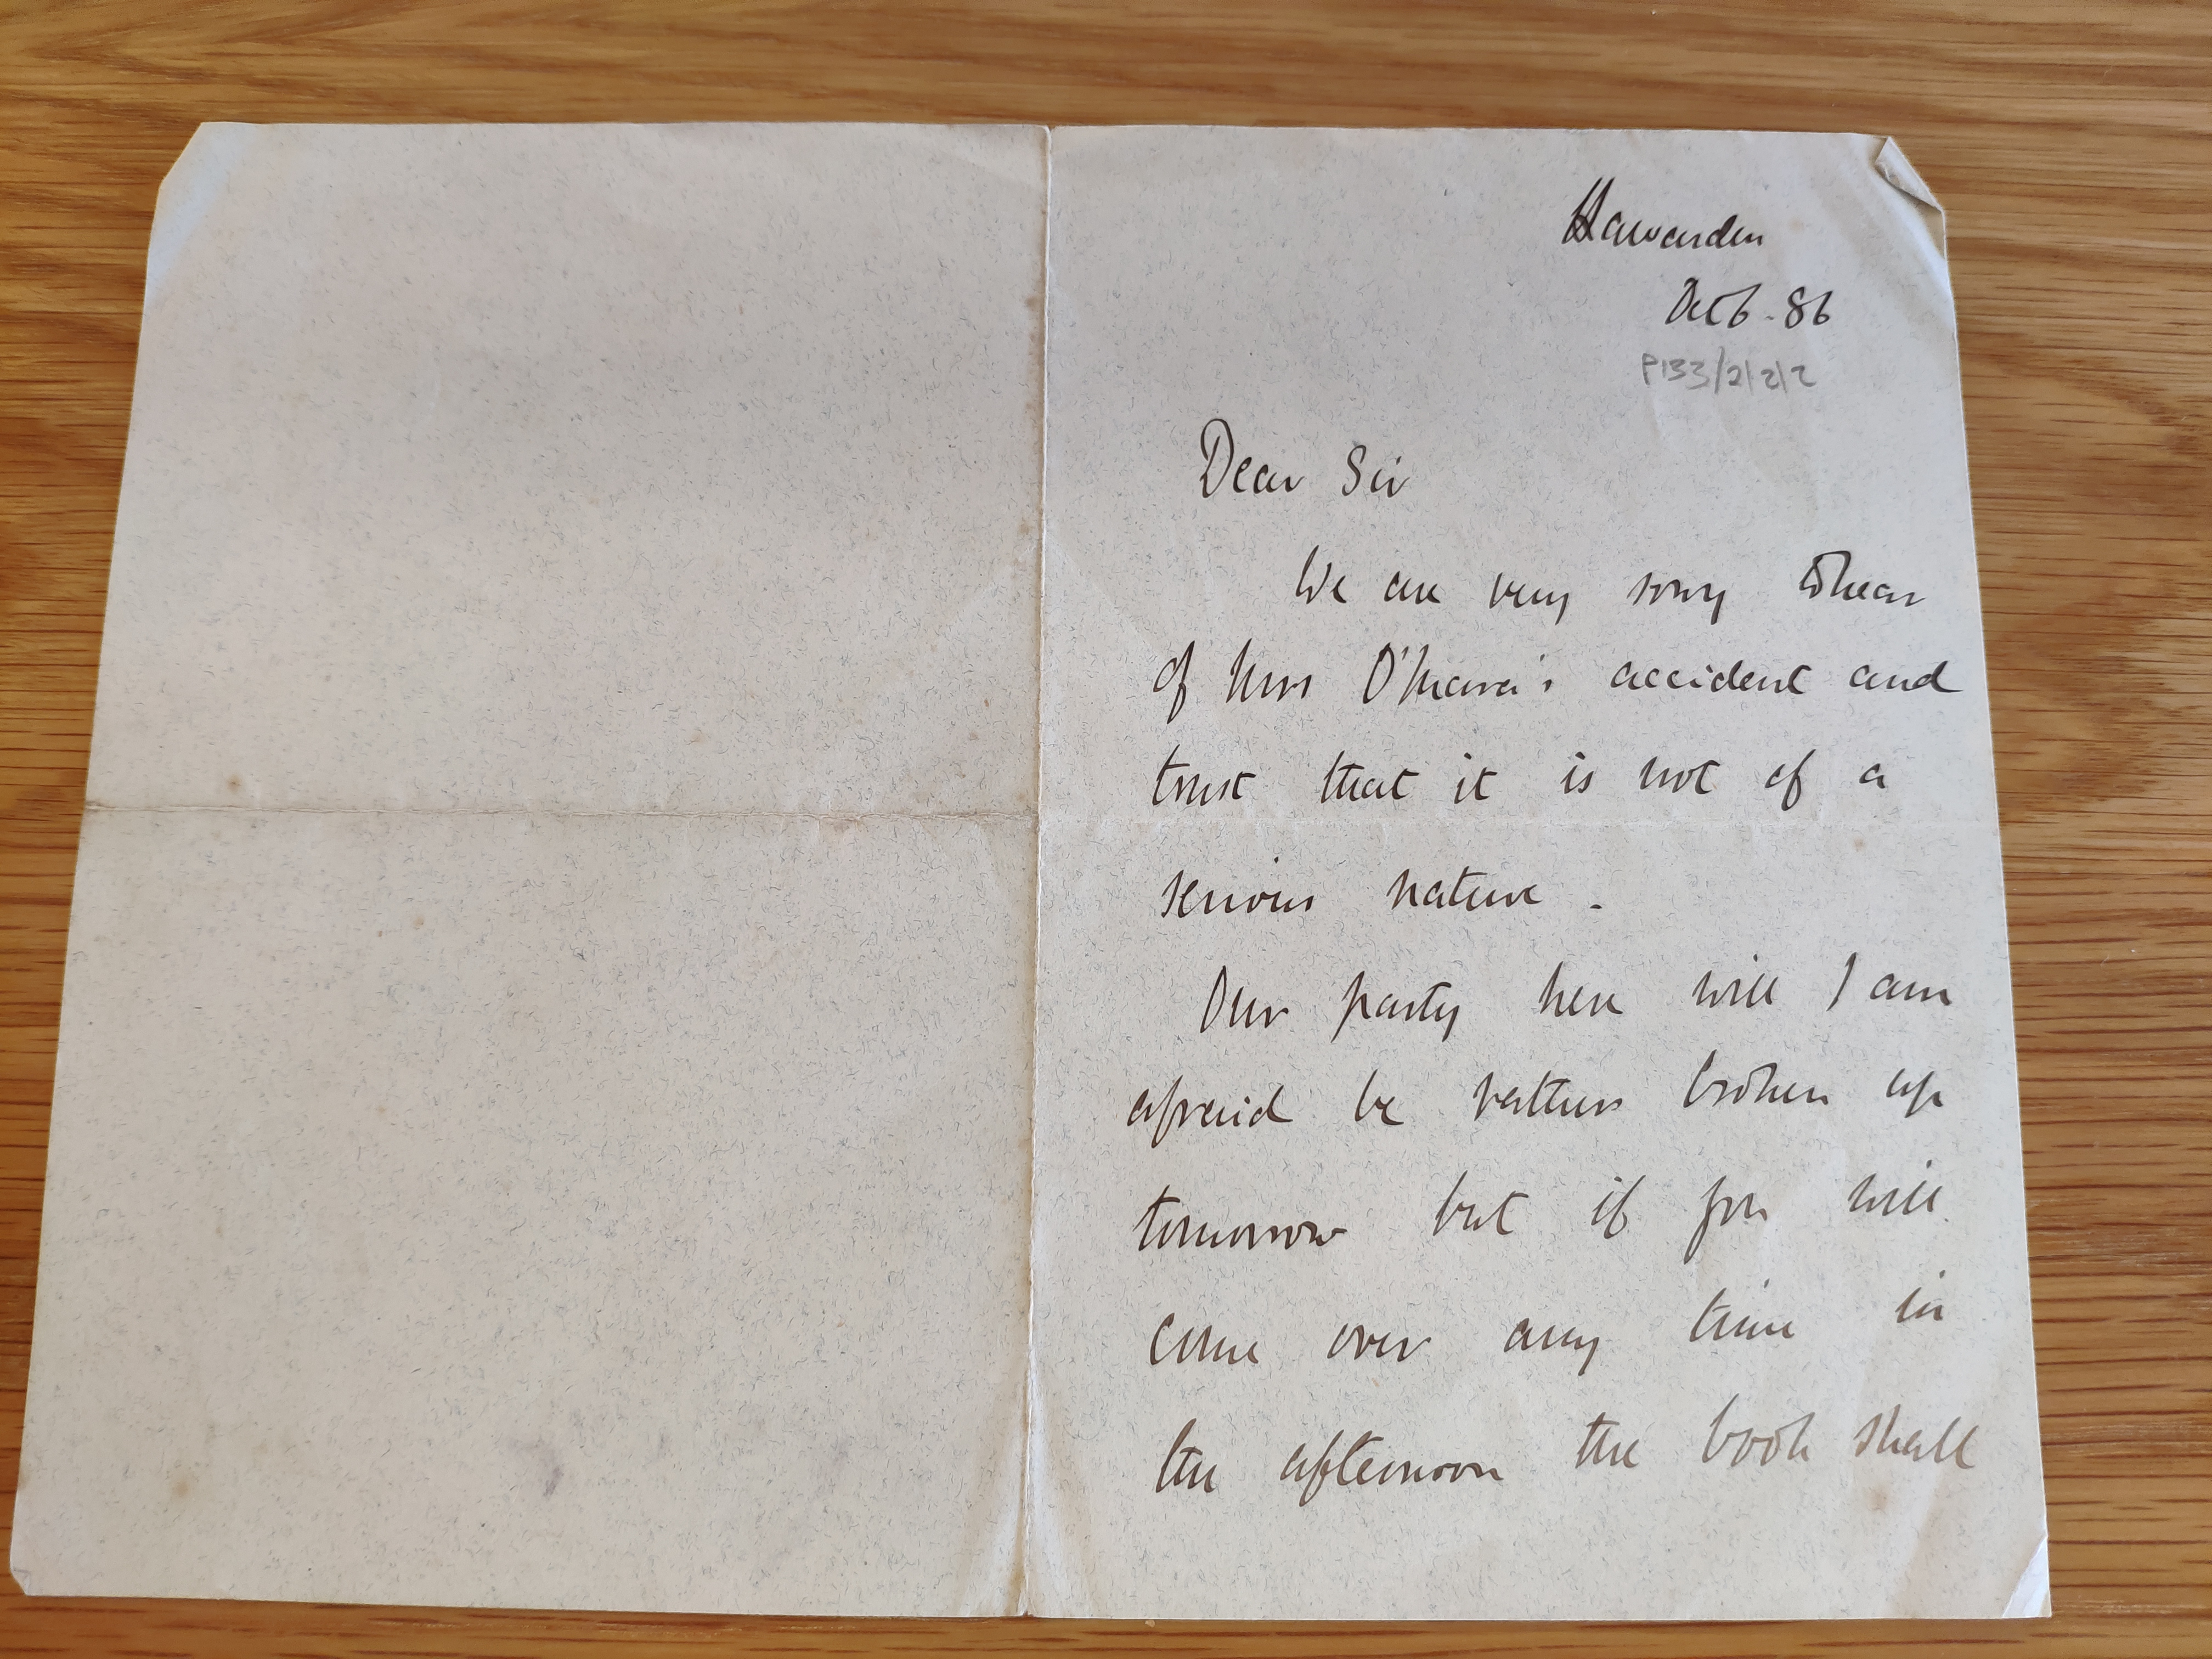 Hawarden
Oct 6. 86
P133/2/2/2
Dear Sir
We are very sorry to hear
of Mrs O'Mara's accident and
trust that it is not of a
serious nature.
Our party here will I am
afraid be rather broken up
tomorrow but if you will
come over any time in
the afternoon the book shall